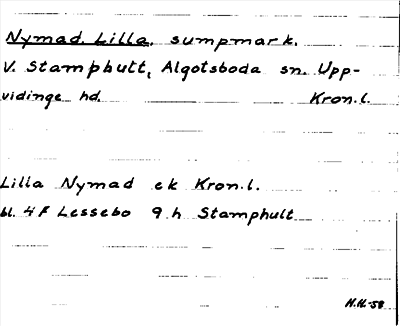 Nymad, Lilla, sumpmark.
V. Stamphult, Algotsboda sn. Upp-
vidinge hd. Kron.l.
Lilla Nymad ek Kron.l.
bl. 4F Lessebo 9 h Stamphult
H.H.-58